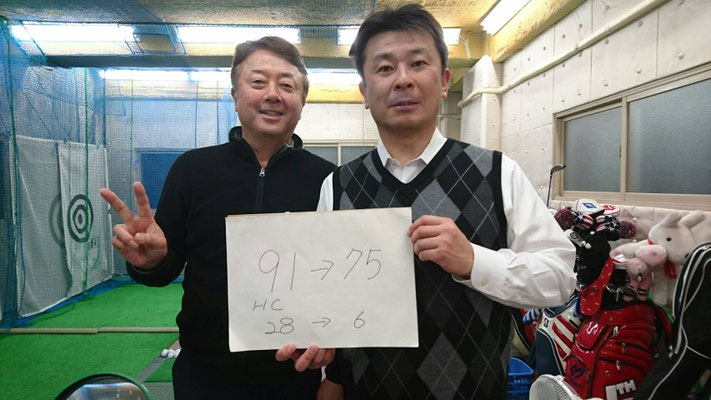 91→75
HC
28→6
TH